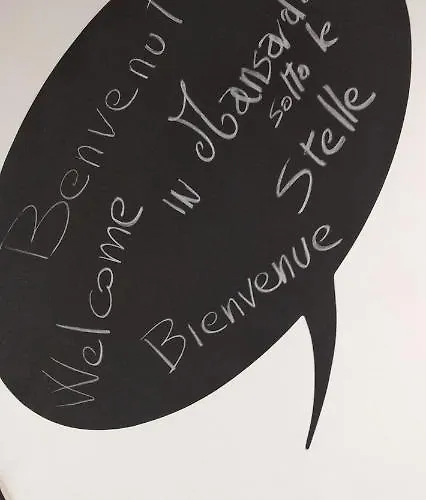 Benvenut
IN Mansard
sotto le
Stelle
Welcome
Bienvenue